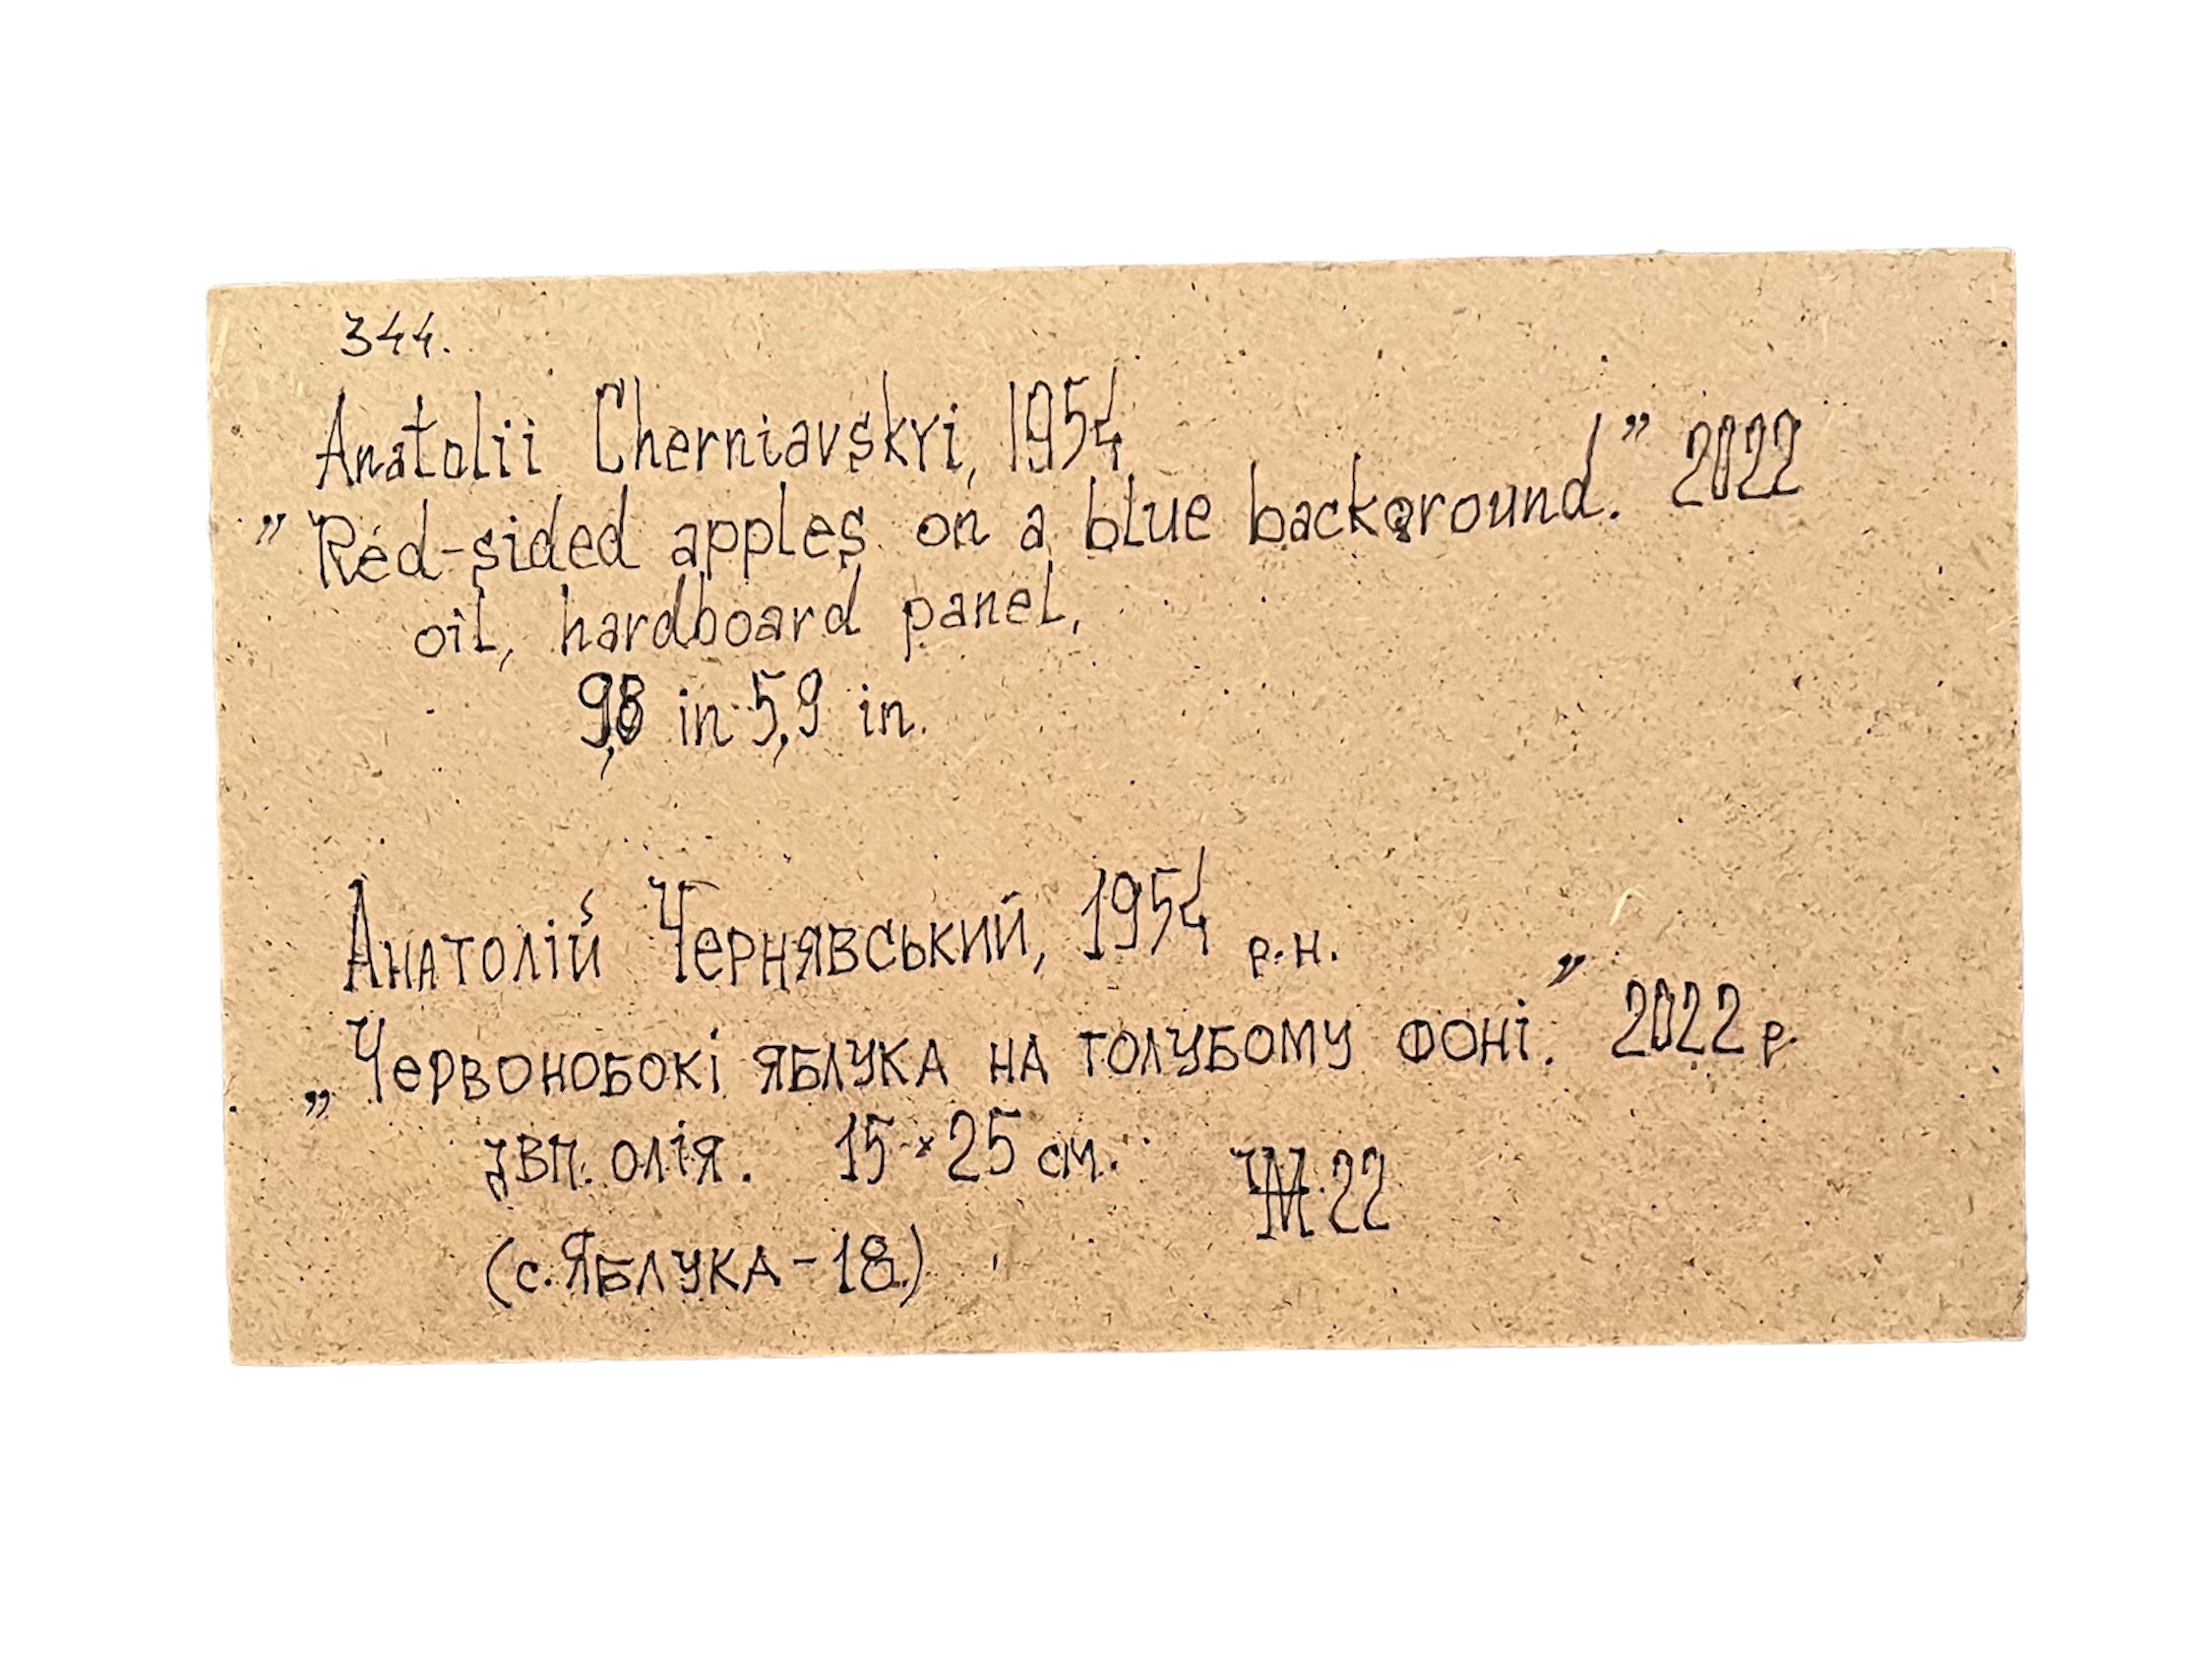 344.
Anatolii Cherniavskyi, 1954
"Red-sided apples on a blue background." 2022
oil, hardboard panel,
9,8 in·5,9 in.
Анатолій Чернявський, 1954 р.н.
„Червонобокі яблука на голубому фоні." 2022 р.
двп. олія. 15×25 см. 22
(с. Яблука-18.)